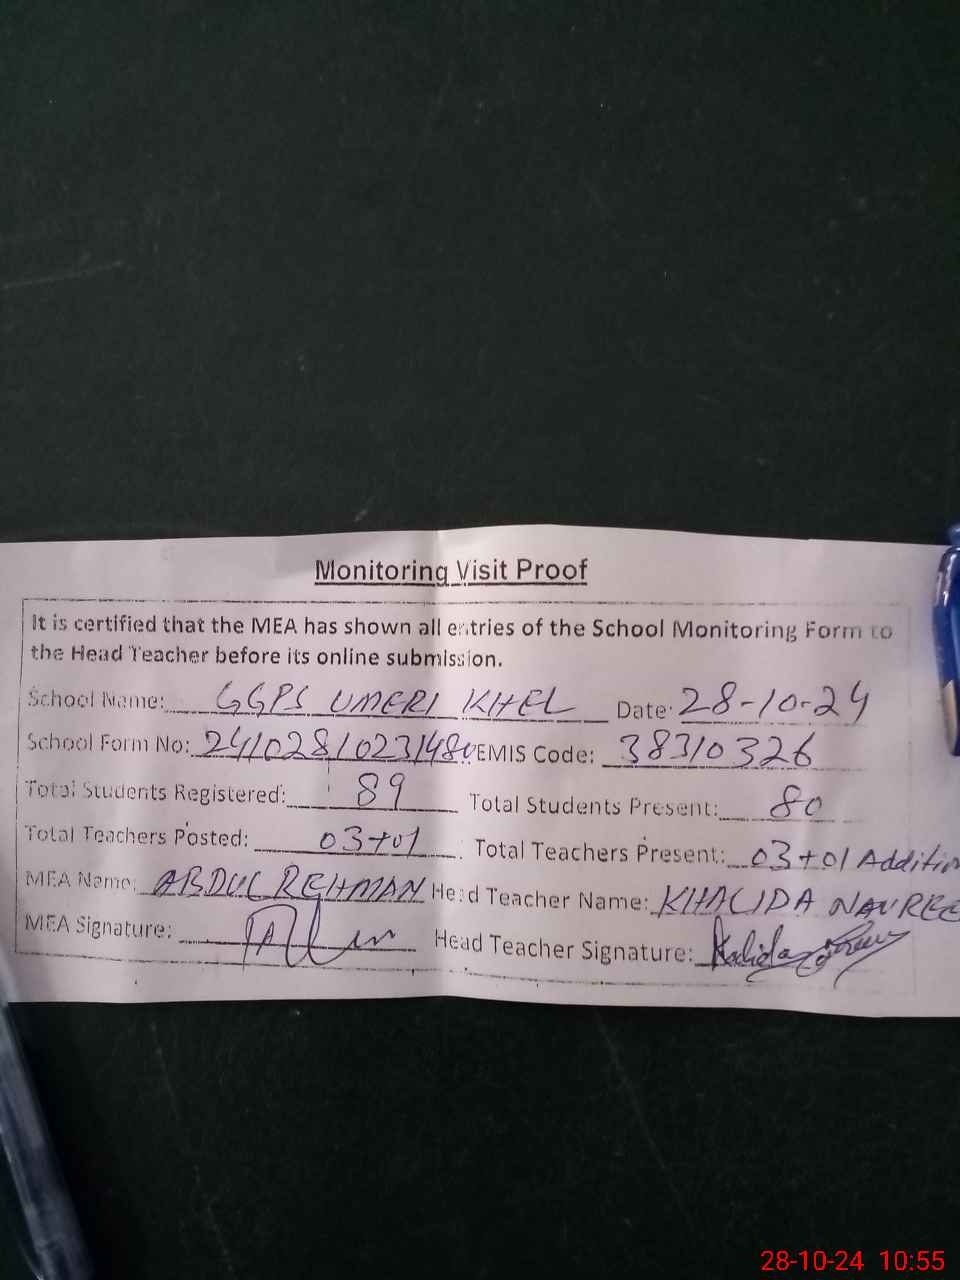 Monitoring Visit Proof
It is certified that the MEA has shown all entries of the School Monitoring Form to
the Head Teacher before its online submission.
School Name: GGPS UMERI KHEL Date: 28-10-24
School Form No: EMIS Code: 38310326
Total Students Registered: 89 Total Students Present: 80
Total Teachers Posted: 03+01 Total Teachers Present: 03+01 Addition
MEA Name: ABDUL REHMAN Head Teacher Name: KHALIDA NAUREE
MEA Signature: Head Teacher Signature: Khalida
28-10-24 10:55